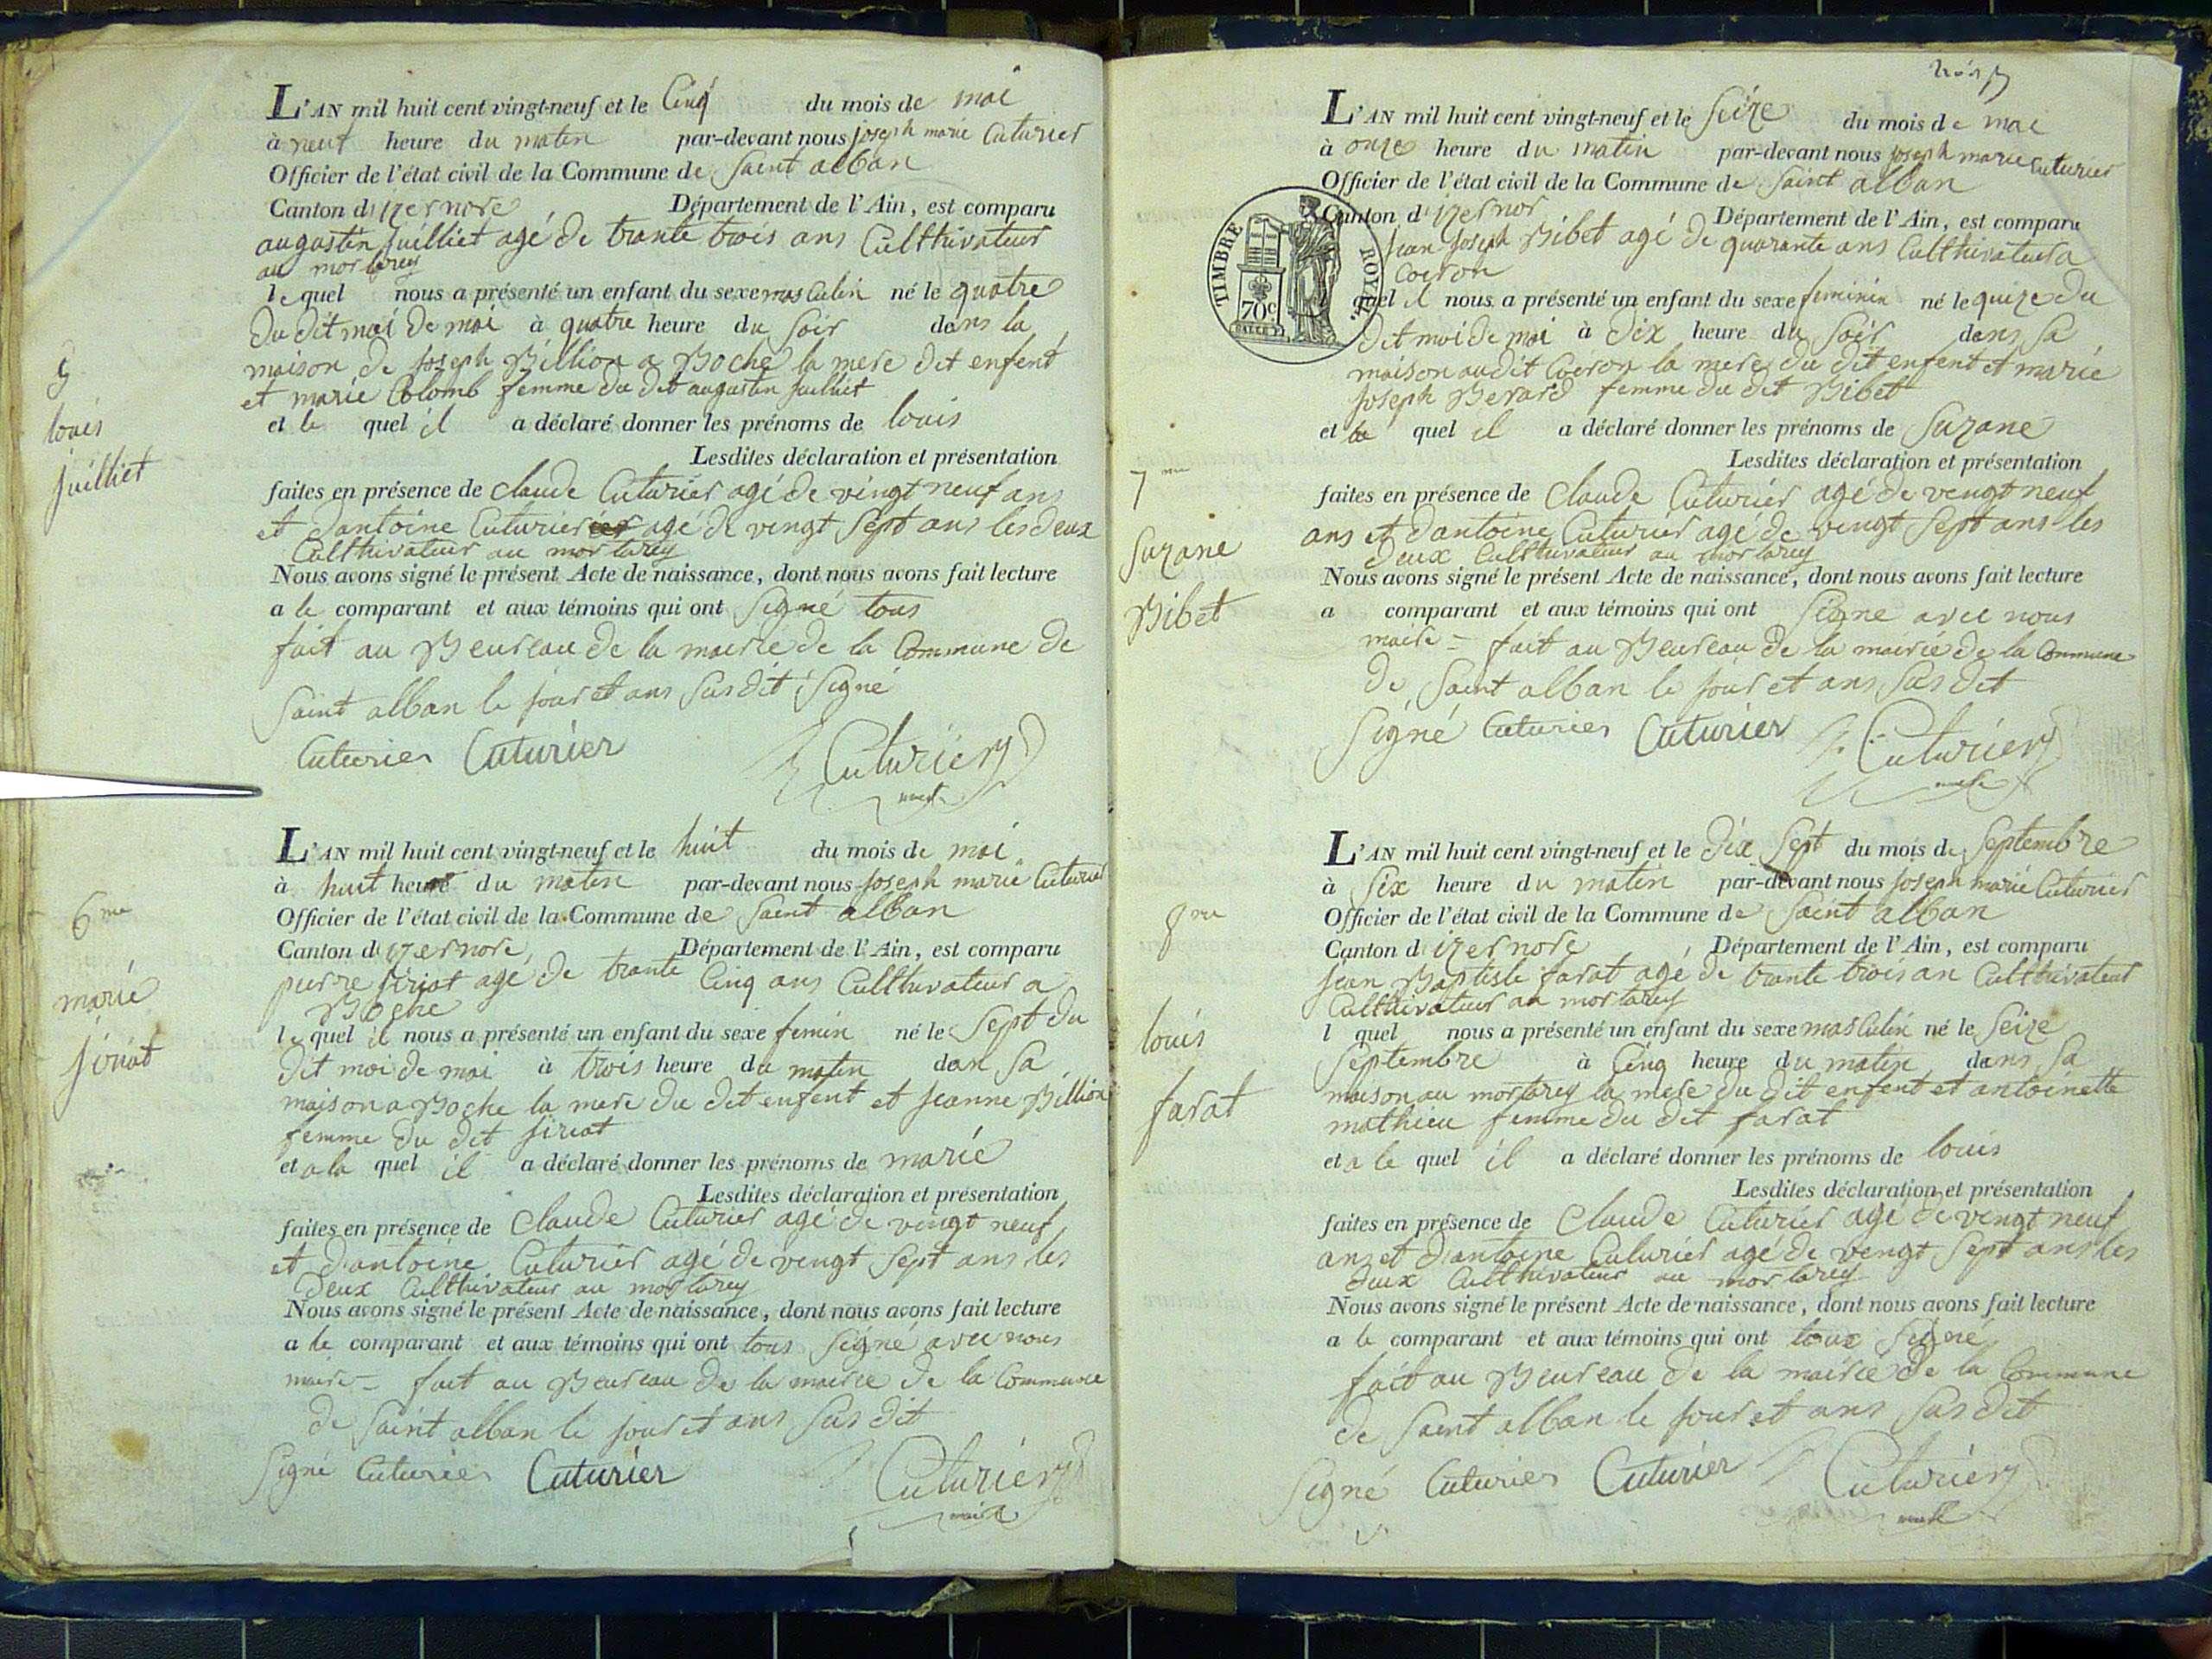 L'AN mil huit cent vingt-neuf et le Cinq du mois de mai
à neuf heure du matin par-devant nous joseph marie Cuturier
Officier de l'état civil de la Commune de Saint alban
Canton d izernore Département de l'Ain, est comparu
augustin juilliet agé de trante trois ans Culthivateur
au mortarey
lequel nous a présenté un enfant du sexe masculin né le quatre
du dit moi de mai à quatre heure du soir dans la
maison de joseph Billion a Boche la mere dit enfent
et marie Colomb femme du dit augustin juilliet
et le quel il a déclaré donner les prénoms de louis
Lesdites déclaration et présentation
faites en présence de claude Cuturier agé de vingt neuf ans
et dantoine Cuturier agé de vingt sept ans les deux
Culthivateur au mortarey
Nous avons signé le présent Acte de naissance, dont nous avons fait lecture
a le comparant et aux témoins qui ont signé tous
fait au Beureau de la mairie de la Commune de
Saint alban le jour et ans susdit signé
Cuturier Cuturier Cuturier
maire
5
louis
juilliet
L'AN mil huit cent vingt-neuf et le huit du mois de mai
à huit heure du matin par-devant nous joseph marie Cuturier
Officier de l'état civil de la Commune de Saint alban
Canton d izernore, Département de l'Ain, est comparu
pierre jiriot agé de trante Cinq ans Culthivateur a
Boche
lequel il nous a présenté un enfant du sexe femin né le sept du
dit moi de mai à trois heure du matin dan sa
maison a Boche la mere du dit enfent et jeanne Billion
femme du dit jiriot
et a la quel il a déclaré donner les prénoms de marie
Lesdites déclaration et présentation
faites en présence de Claude Cuturier agé de vingt neuf
et d'antoine Cuturier agé de vingt sept ans les
deux Culthivateur au mortarey
Nous avons signé le présent Acte de naissance, dont nous avons fait lecture
a le comparant et aux témoins qui ont tous signé avec nous
maire - fait au Beureau de la mairie de la Commune
de Saint alban le jour et ans sus dit
Signé Cuturier Cuturier Cuturier
maire
6me
marie
jiriot
L'AN mil huit cent vingt-neuf et le seize du mois de mai
à onze heure du matin par-devant nous joseph marie Cuturier
Officier de l'état civil de la Commune de Saint alban
Canton d izernor Département de l'Ain, est comparu
jean joseph Bibet agé de quarante ans Culthivateur a
Coiron
l quel il nous a présenté un enfant du sexe feminin né le quize du
dit moi de mai à dix heure du soir dans sa
maison audit Coiron la mere du dit enfent et marie
joseph Berard femme du dit Bibet
et la quel il a déclaré donner les prénoms de Suzane
Lesdites déclaration et présentation
faites en présence de Claude Cuturier agé de vengt neuf
ans et dantoine Cuturier agé de vingt sept ans les
deux Culthivateur au mortarey
Nous avons signé le présent Acte de naissance, dont nous avons fait lecture
a comparant et aux témoins qui ont signe avec nous
maire - fait au Beureau de la mairie de la Commune
de Saint alban le jour et ans sus dit
Signé Cuturier Cuturier Cuturier
maire
TIMBRE ROYAL
70c
7me
Suzane
Bibet
L'AN mil huit cent vingt-neuf et le dix Sept du mois de Septembre
à Six heure du matin par-devant nous joseph marie Cuturier
Officier de l'état civil de la Commune de Saint alban
Canton d izernore Département de l'Ain, est comparu
jean Baptiste farat agé de trante trois an Culthivateur
Culthivateur au mortarey
l quel nous a présenté un enfant du sexe masculin né le Seize
Septembre à Cinq heure du matin dans sa
maison au mortarey la mere du dit enfent et antoinette
mathieu femme du dit farat
et a le quel il a déclaré donner les prénoms de louis
Lesdites déclaration et présentation
faites en présence de Claude Cuturier agé de vengt neuf
ans et d'antoine Cuturier agé de vengt Sept ans les
deux Culthivateur au mortarey
Nous avons signé le présent Acte de naissance, dont nous avons fait lecture
a le comparant et aux témoins qui ont tous signé
fait au Beureau de la mairie de la Commune
de Saint alban le jour et ans sus dit
Signé Cuturier Cuturier Cuturier
maire
8me
louis
farat